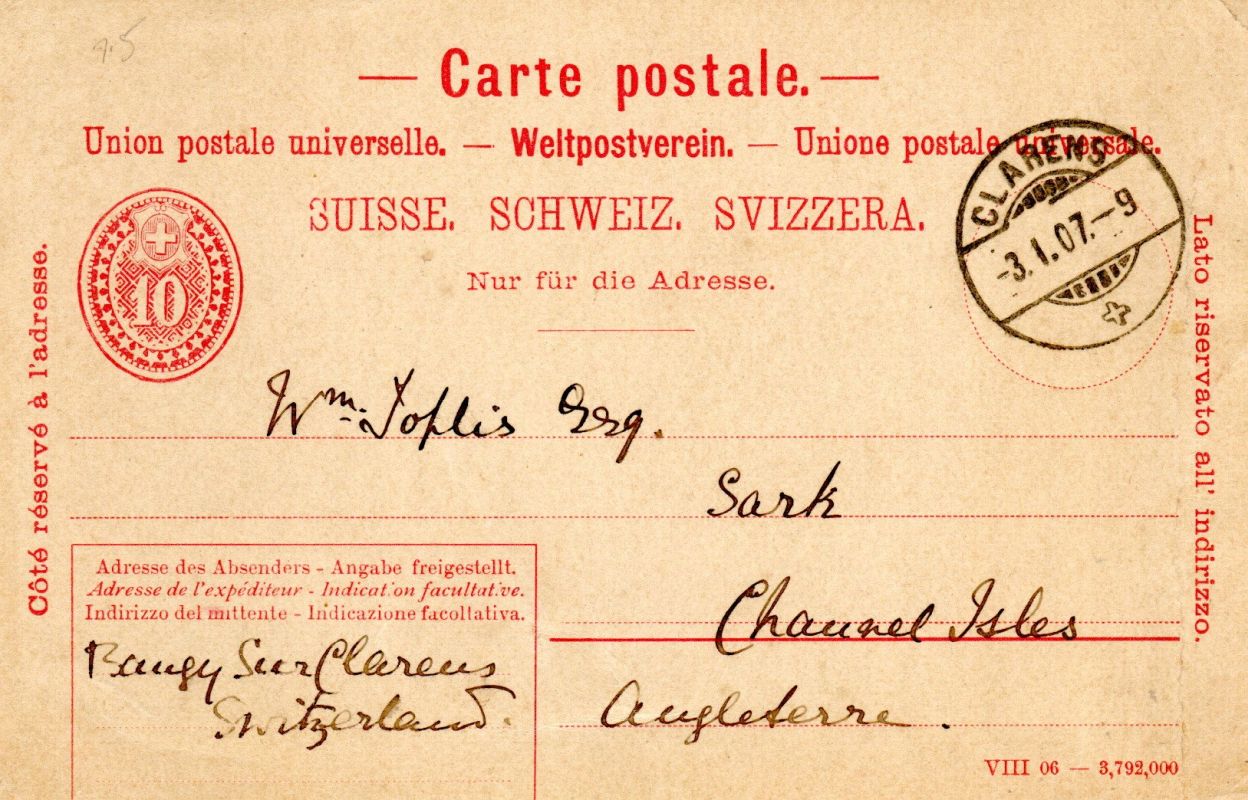 9.5
— Carte postale. —
Union postale universelle. — Weltpostverein. — Unione postale universale.
SUISSE. SCHWEIZ. SVIZZERA.
Nur für die Adresse.
10
CLARENS
-3.1.07.-9
Côté réservé à l'adresse.
Lato riservato all' indirizzo.
Wm. Toplis Esq.
Sark
Channel Isles
Angleterre.
Adresse des Absenders - Angabe freigestellt.
Adresse de l'expéditeur - Indication facultative.
Indirizzo del mittente - Indicazione facoltativa.
Baugy Sur Clarens
Switzerland.
VIII 06 — 3,792,000